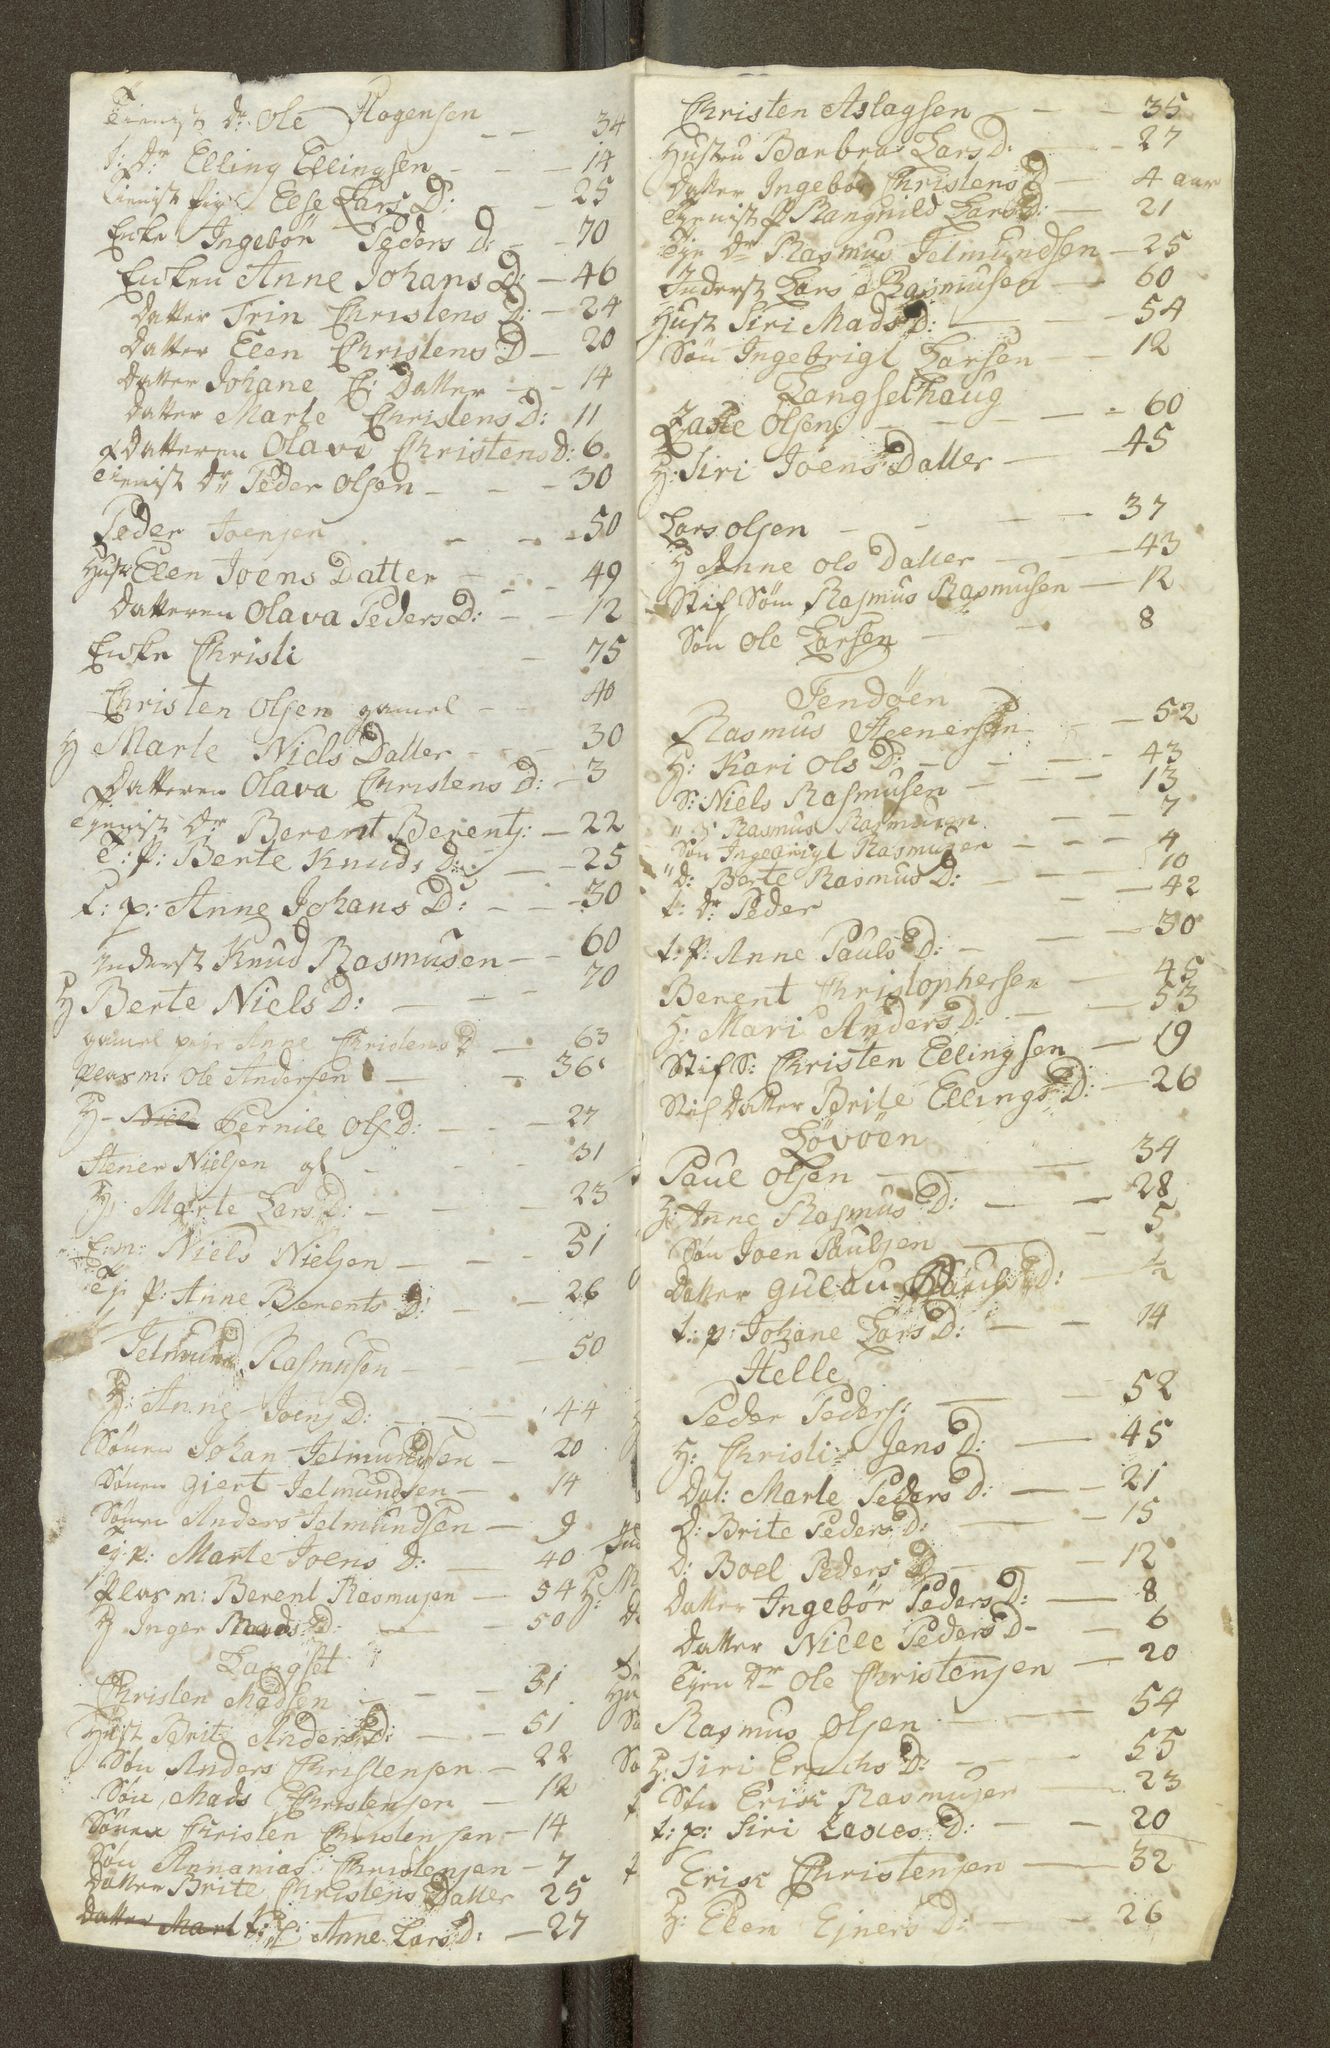 Tienist Dr Ole Rogensen -- 34
t: Dr Elling Ellingsen - - - 14
Tienist pige Else Lars D: - - 25
Encke Ingebör Peders D: - - 70
Encken Anne Johans D: - 46
Datter Trin Christens D: - 24
Datter Elen Christens D - 20
Datter Johane C: Datter - - 14
Datter Marte Christens D: 11
Datteren Olava Christens D: 6
tienist Dr Peder Olsen - - - 30
Peder Joensen - - - 50
Hust: Elen Joens Datter - - - 49
Datteren Olava Peders D: - - 12
Encke Christi - 75
Christen Olsen gamel - - 40
H Marte Niels Datter - - - 30
Datteren Olava Christens D: - 3
Tjenist Dr Berent Berents: - 22
T: P: Berte Knuds D: - - 25
t: p: Anne Johans D: - - - 30
Inderst Knud Rasmusen - - 60
H Berte Niels D: - - - 70
gamel pige Anne Christens D - 63
Plas m: Ole Andersen - - 36
H - Pernile Ols D: - - - 27
Stener Nielsen gl - - - 31
H: Marte Lars D: - - - 23
Enm: Niels Nielsen - - - 51
Tj: P: Anne Berents D: - - 26
Jelmund Rasmusen - - - 50
H: Anne Joens D: - - - 44
Sönen Johan Jelmundsen - 20
Sönen Giert Jelmundsen - 14
Sönen Anders Jelmundsen - 9
Tj: p: Marte Joens D: - 40
Plas m: Berent Rasmusen - 54
H Inger Mads D: - - 50
Langset
Christen Madsen - - - 51
Hust Brite Anders D: - - 51
Sön Anders Christensen - 22
Sön Mads Christensen - 12
Sönen Christen Christensen - 14
Sön Annanias Christensen - 7
Datter Brite Christens Datter 25
Datter Mart t: P: Anne Lars D: - 27
Christen Aslagsen - - - 35
Hustru Barbra Lars D: - - 27
Datter Ingebör Christens D - 4 aar
Tjenist P Rangnild Lars D: - 21
Tje Dr Rasmus Jelmundsen - 25
Inderst Lars Rasmusen - - 60
Hust Siri Mads D: - - - 54
Sön Ingebrigt Larsen - - 12
Langsethaug
Olsen - - - - 60
H: Siri Joens Datter - - 45
Lars Olsen - - - 37
H Anne Ols Datter - - - 43
Stif Sön Rasmus Rasmusen - 12
Sön Ole Larsen - - 8
Fendöen
Rasmus Steenersen - - 52
H: Kari Ols D: - - - 43
S: Niels Rasmusen - - - 13
" S Rasmus Rasmusen - - 7
Sön Ingebrigt Rasmusen - - - 4
" D: Berte Rasmus D: - - - 10
t: Dr Peder - - 42
t: P: Anne Pauls D: - - - 30
Berent Christophersen - - 45
H: Mari Anders D: - - - 53
Stif S: Christen Ellingsen - 19
Stif Datter Brite Ellings D: - 26
Lövöen
Paul Olsen - - - 34
H: Anne Rasmus D: - - 28
Sön Joen Paulsen - - 5
Datter Gulau Pauls D: - ½
t: p: Johane Lars D: - - 14
Helle
Peder Peders: - - 52
H: Christi Jens D: - 45
Dat: Marte Peders D: - - 21
D: Brite Peders D: - - 15
D: Boel Peders D - - 12
Datter Ingebör Peders D: - 8
Datter Nille Peders D - - 6
Tjen Dr Ole Christensen - 20
Rasmus Olsen - - - 54
H: Siri Erichs D: - - - 55
Sön Erick Rasmusen - 23
t: p: Siri D: - - 20
Erick Christensen - 32
H: Elen Ejners D: - 26